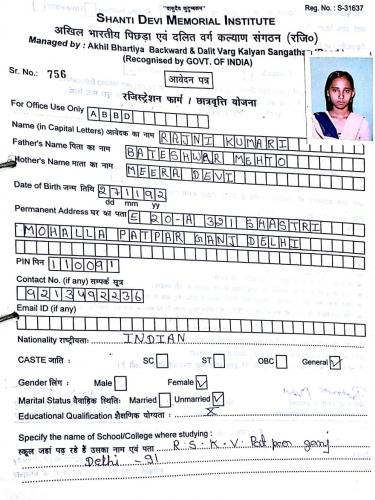 "वासुदेव कुटुम्बकम" Reg. No. : S-31637
SHANTI DEVI MEMORIAL INSTITUTE
अखिल भारतीय पिछड़ा एवं दलित वर्ग कल्याण संगठन (रजि०)
Managed by : Akhil Bhartiya Backward & Dalit Varg Kalyan Sangathan
(Recognised by GOVT. OF INDIA)
Sr. No.: 756
आवेदन पत्र
रजिस्ट्रेशन फार्म / छात्रवृत्ति योजना
For Office Use Only A B B D
Name (in Capital Letters) आवेदक का नाम RAJNI KUMARI
Father's Name पिता का नाम BATESHWAR MEHTO
Mother's Name माता का नाम MEERA DEVI
Date of Birth जन्म तिथि 271192
dd mm yy
Permanent Address घर का पता E 20-A 321 SHASTRI
MOHALLA PATPAR GANJ DELHI
PIN पिन 110091
Contact No. (if any) सम्पर्क सूत्र
9213492236
Email ID (if any)
Nationality राष्ट्रीयता: INDIAN
CASTE जाति : SC ST OBC General ✓
Gender लिंग : Male Female ✓
Marital Status वैवाहिक स्थिति: Married Unmarried ✓
Educational Qualification शैक्षणिक योग्यता : X
Specify the name of School/College where studying :
स्कूल जहां पढ़ रहे हैं उसका नाम एवं पता R.S.K.V. Pat par ganj
Delhi - 91